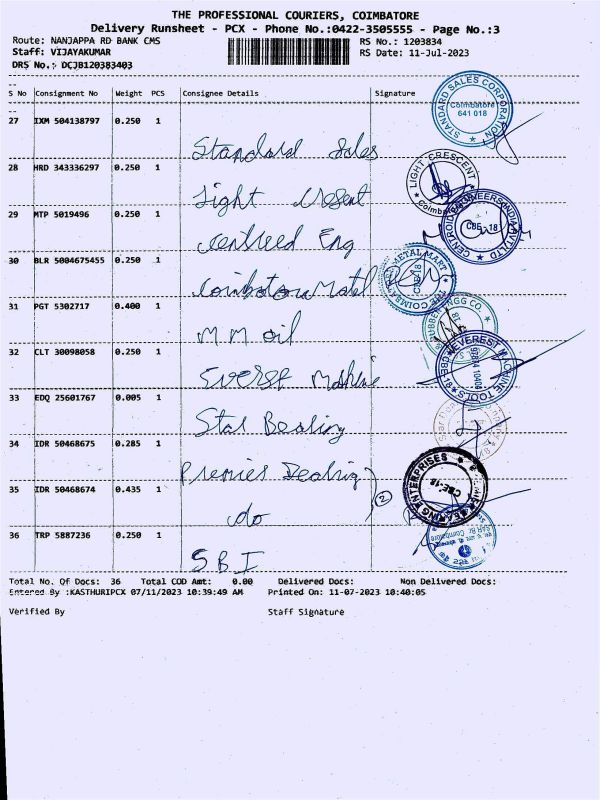 THE PROFESSIONAL COURIERS, COIMBATORE
Delivery Runsheet - PCX - Phone No.:0422-3505555 - Page No.:3
Route: NANJAPPA RD BANK CMS RS No.: 1203834
Staff: VIJAYAKUMAR RS Date: 11-Jul-2023
DRS No.: DCJB120383403
S No Consignment No Weight PCS Consignee Details Signature
27 IXM 504138797 0.250 1
Standard Sales
STANDARD SALES CORPORATION
Coimbatore
641 018
28 HRD 343336297 0.250 1
Light Cresent
LIGHT CRESCENT
29 MTP 5019496 0.250 1
Eng
CBE - 18
30 BLR 5004675455 0.250 1
THE COIMBATORE METAL MART
CBE-18
31 PGT 5302717 0.400 1
M M oil
32 CLT 30098058 0.250 1
EVEREST MACHINE TOOLS
33 EDQ 25601767 0.005 1
Star Bearing
34 IDR 50468675 0.285 1
Premier Bearing
BEARING ENTERPRISES
CBE-18
35 IDR 50468674 0.435 1
do
2
36 TRP 5887236 0.250 1
SBI
Total No. Of Docs: 36 Total COD Amt: 0.00 Delivered Docs: Non Delivered Docs:
Entered By :KASTHURIPCX 07/11/2023 10:39:49 AM Printed On: 11-07-2023 10:40:05
Verified By Staff Signature